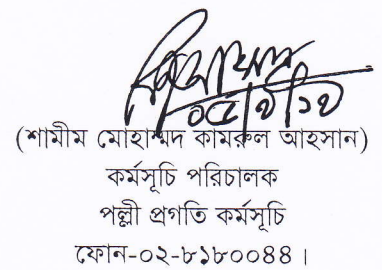 (শামীম মোহাম্মদ কামরুল আহসান)
কর্মসূচি পরিচালক
পল্লী প্রগতি কর্মসূচি
ফোন-০২-৮১৮০০৪৪।